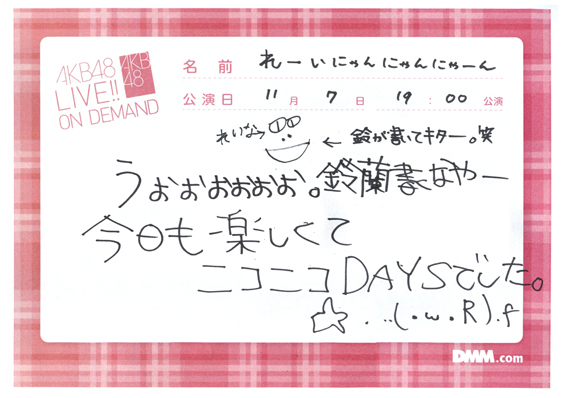 AKB48
LIVE!!
ON DEMAND
AKB
48
名前 れーいにゃんにゃんにゃーん
公演日 11月7日 19:00公演
れいな→ ← 鈴が書いてキター。笑
うぉぉぉぉぉぉ。鈴蘭書くなやー
今日も楽しくて
ニコニコDAYSでした。
☆...(・w・R).f
DMM.com